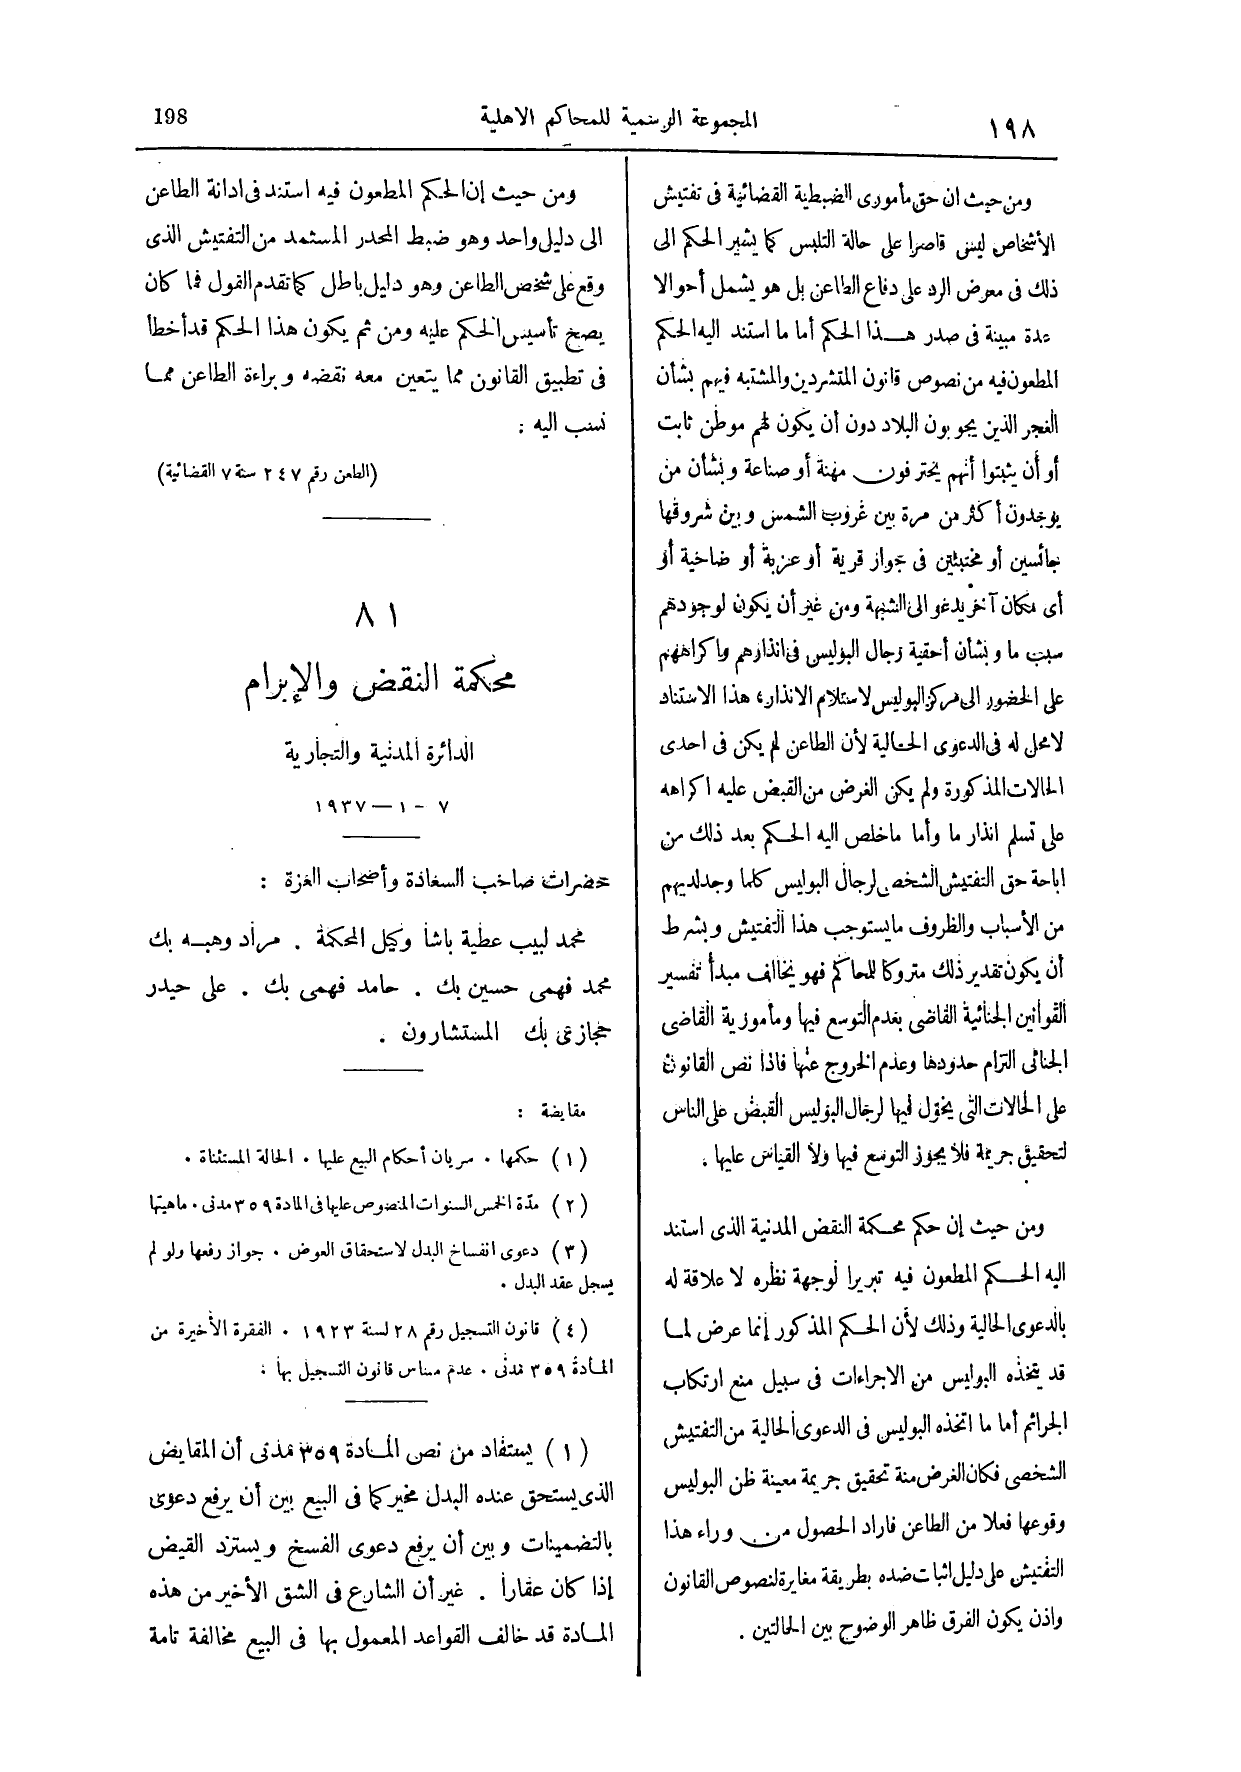 ١٩٨
المجموعة الرسمية للمحاكم الاهلية
198
ومن حيث ان حق مأمورى الضبطية القضائية فى تفتيش
الأشخاص ليس قاصرا على حالة التلبس كما يشير الحكم الى
ذلك فى معرض الرد على دفاع الطاعن بل هو يشمل أحوالا
عدة مبينة فى صدر هذا الحكم أما ما استند اليه الحكم
المطعون فيه من نصوص قانون المتشردين والمشتبه فيهم بشأن
الغجر الذين يجوبون البلاد دون أن يكون لهم موطن ثابت
أو أن يثبتوا أنهم يحترفون مهنة أو صناعة وبشأن من
يوجدون أكثر من مرة بين غروب الشمس وبين شروقها
جائسين أو مختبئين فى جوار قرية أو عزبة أو ضاحية أو
أى مكان آخر يدعو الى الشبهة ومن غير أن يكون لوجودهم
سبب ما وبشأن أحقية رجال البوليس فى انذارهم واكراههم
على الحضور الى مركز البوليس لاستلام الانذار، هذا الاستناد
لا محل له فى الدعوى الحالية لأن الطاعن لم يكن فى احدى
الحالات المذكورة ولم يكن الغرض من القبض عليه اكراهه
على تسلم انذار ما وأما ما خلص اليه الحكم بعد ذلك من
اباحة حق التفتيش الشخصى لرجال البوليس كلما وجد لديهم
من الأسباب والظروف ما يستوجب هذا التفتيش وبشرط
أن يكون تقدير ذلك متروكا للحاكم فهو يخالف مبدأ تفسير
القوانين الجنائية القاضى بعدم التوسع فيها ومأمورية القاضى
الجنائى التزام حدودها وعدم الخروج عنها فاذا نص القانون
على الحالات التى يخول فيها لرجال البوليس القبض على الناس
لتحقيق جريمة فلا يجوز التوسع فيها ولا القياس عليها .
ومن حيث إن حكم محكمة النقض المدنية الذى استند
اليه الحكم المطعون فيه تبريرا لوجهة نظره لا علاقة له
بالدعوى الحالية وذلك لأن الحكم المذكور إنما عرض لما
قد يتخذه البوليس من الاجراءات فى سبيل منع ارتكاب
الجرائم أما ما اتخذه البوليس فى الدعوى الحالية من التفتيش
الشخصى فكان الغرض منه تحقيق جريمة معينة ظن البوليس
وقوعها فعلا من الطاعن فاراد الحصول من وراء هذا
التفتيش على دليل اثبات ضده بطريقة مغايرة لنصوص القانون
واذن يكون الفرق ظاهر الوضوح بين الحالتين .
ومن حيث إن الحكم المطعون فيه استند فى ادانة الطاعن
الى دليل واحد وهو ضبط المخدر المستمد من التفتيش الذى
وقع على شخص الطاعن وهو دليل باطل كما تقدم القول فما كان
يصح تأسيس الحكم عليه ومن ثم يكون هذا الحكم قد أخطأ
فى تطبيق القانون مما يتعين معه نقضه وبراءة الطاعن مما
نسب اليه .
(الطعن رقم ٢٤٧ سنة ٧ القضائية)
٨١
محكمة النقض والإبرام
الدائرة المدنية والتجارية
٧ - ١ - ١٩٣٧
حضرات صاحب السعادة وأصحاب العزة :
محمد لبيب عطية باشا وكيل المحكمة . مراد وهبه بك
محمد فهمى حسين بك . حامد فهمى بك . على حيدر
حجازى بك المستشارون .
مقايضة :
(١) حكمها . سريان أحكام البيع عليها . الحالة المستثناة .
(٢) مدة الخمس السنوات المنصوص عليها فى المادة ٣٥٩ مدنى . ماهيتها
(٣) دعوى انفساخ البدل لاستحقاق العوض . جواز رفعها ولو لم
يسجل عقد البدل .
(٤) قانون التسجيل رقم ٢٨ لسنة ١٩٢٣ . الفقرة الأخيرة من
المادة ٣٥٩ مدنى . عدم مساس قانون التسجيل بها .
(١) يستفاد من نص المادة ٣٥٩ مدنى أن المقايض
الذى يستحق عنده البدل مخير كما فى البيع بين أن يرفع دعوى
بالتضمينات وبين أن يرفع دعوى الفسخ ويسترد القيض
إذا كان عقارا . غير أن الشارع فى الشق الأخير من هذه
المادة قد خالف القواعد المعمول بها فى البيع مخالفة تامة